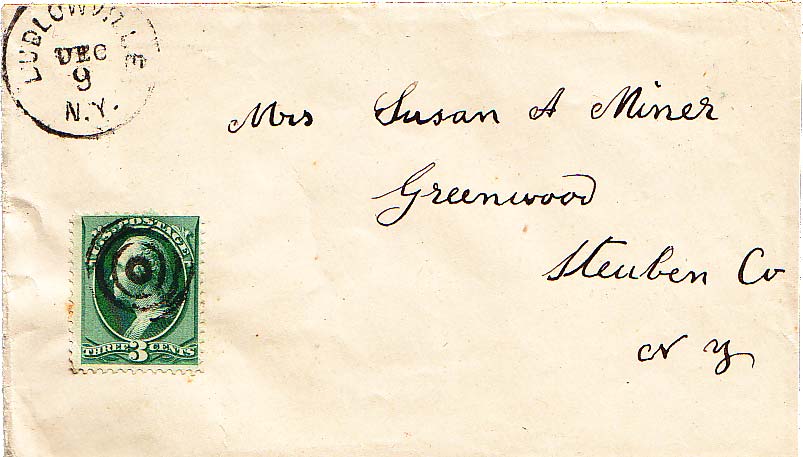 LUDLOWVILLE
DEC
9
N.Y.
Mrs Susan A Miner
Greenwood
Steuben Co
N Y
U.S. POSTAGE
THREE 3 CENTS